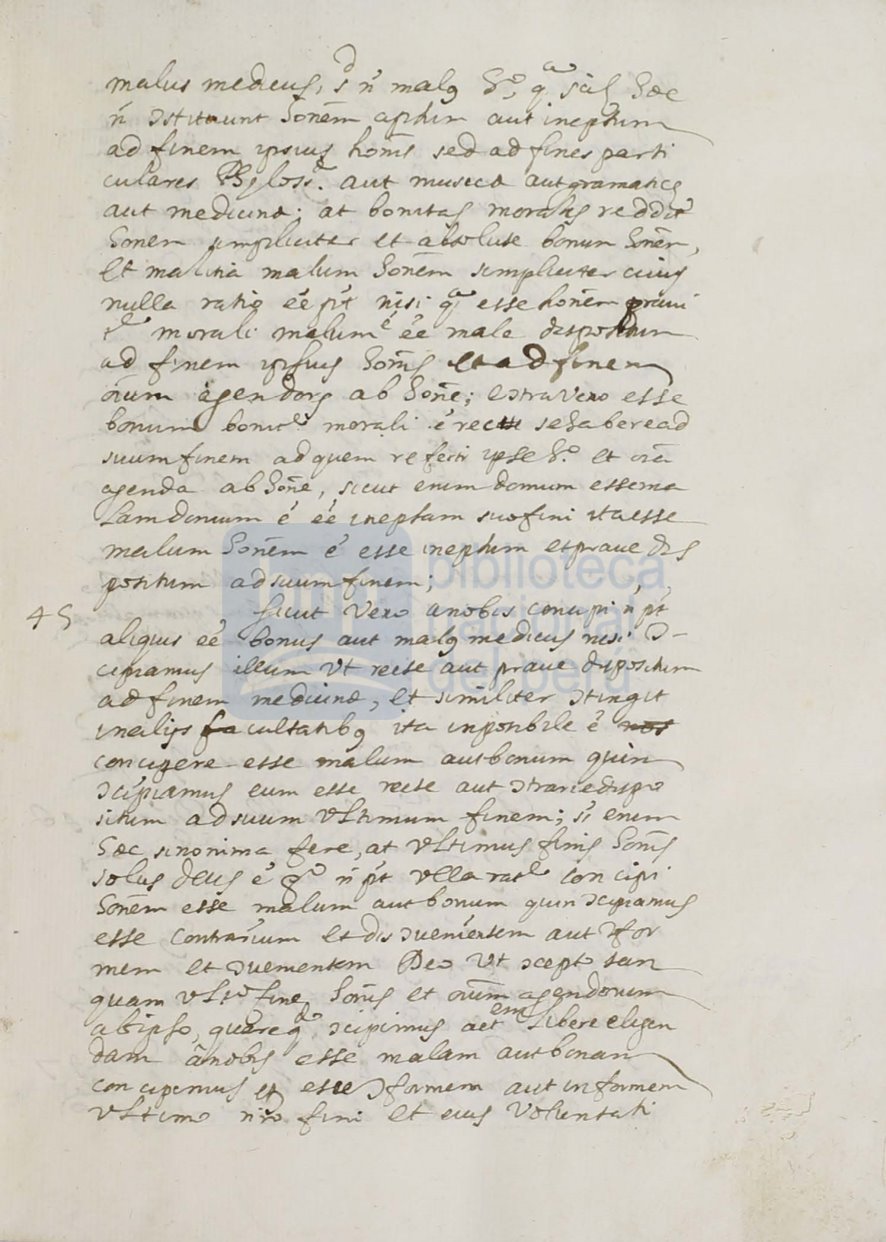 malus medicus, sd ñ malꝯ hº, qa sciã hæc
ñ ↄstituunt honẽm aptum aut ineptum
ad finem ipsius homĩs sed ad fines parti
culares Phylosª. aut musicæ aut gramaticę
aut medicinæ; at bonitas moralis reddit
honẽm simpliciter et absolute bonum honẽm,
et malitia malum honẽm simpliciter cuius
nulla ratio eẽ pt̃ nisi qa esse honẽm praui
te morali malum ẽ eẽ male dispositum
ad finem ipsius homĩs et ad finem
oium agendorꝫ ab hoñe; ↄtra vero esse
bonum bonite morali ẽ recte se habere ad
suum finem ad quem referri ipse hº et oĩa
agenda ab hoñe, sicut enim domum esse ma
lam domum ẽ eẽ ineptam suo fini ita esse
malum honẽm ẽ esse ineptum et praue dis
positum ad suum finem;
45 sicut vero a nobis concipi ñ pt̃
aliquis eẽ bonus aut malꝯ medicus nisi ↄ-
cipiamus illum ut recte aut praue dispositum
ad finem medicinæ, et similiter ↄtingit
in alijs facultatibꝯ ita inposibile ẽ nos
concipere esse malum aut bonum quin
ↄcipiamus eum esse recte aut ↄtrarie dispo
situm ad suum ultimum finem; st̃ enim
hæc sinonima fere, at ultimus finis homĩs
solus Deus ẽ gº ñ pt̃ ulla rate concipi
honẽm esse malum aut bonum quin ↄcipiamus
esse contrarium et disↄuenientem aut ↄfor
mem et ↄuenientem Deo ut ↄcepto tan
quam ultº fine homĩs et oiũm agendorum
ab ipso, quare qdo ↄcipimus actem libere eligen
dam a nobis esse malam aut bonam
concipimus et esse ↄformem aut informem
ultimo nrõ fini et eius voluntati